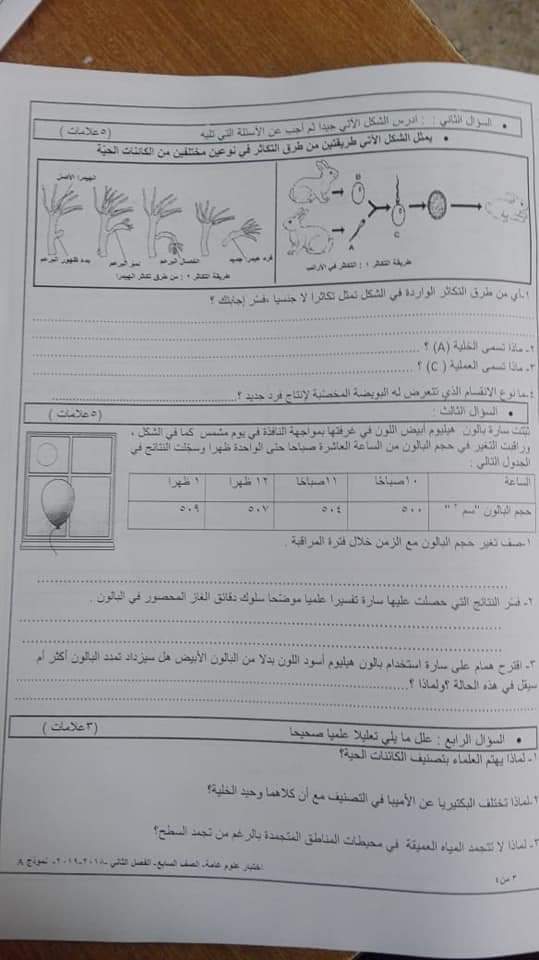 السؤال الثاني : : ادرس الشكل الآتي جيدا ثم أجب عن الأسئلة التي تليه (٥ علامات )
يمثل الشكل الآتي طريقتين من طرق التكاثر في نوعين مختلفين من الكائنات الحيّة
الهيدرا الأصل
بدء ظهور البرعم
نمو البرعم
انفصال البرعم
فرد هيدرا جديد
طريقة التكاثر ٢ : من طرق تكاثر الهيدرا
B
A
C
طريقة التكاثر ١ : التكاثر في الأرانب
١-أي من طرق التكاثر الواردة في الشكل تمثل تكاثرا لا جنسيا ،فسّر إجابتك ؟
٢- ماذا تسمى الخلية (A) ؟
٣- ماذا تسمى العملية ( C) ؟
٤-ما نوع الانقسام الذي تتعرض له البويضة المخصّبة لإنتاج فرد جديد ؟
السؤال الثالث : (٥ علامات )
ثبّتت سارة بالون هيليوم أبيض اللون في غرفتها بمواجهة النافذة في يوم مشمس كما في الشكل ،
وراقبت التغير في حجم البالون من الساعة العاشرة صباحا حتى الواحدة ظهرا وسجّلت النتائج في
الجدول التالي :
الساعة ١٠صباحًا ١١صباحًا ١٢ ظهرا ١ ظهرا
حجم البالون "سم ٣" ٥٠٠ ٥٠٤ ٥٠٧ ٥٠٩
١-صف تغير حجم البالون مع الزمن خلال فترة المراقبة .
٢- فسّر النتائج التي حصلت عليها سارة تفسيرا علميا موضّحا سلوك دقائق الغاز المحصور في البالون .
٣- اقترح همام على سارة استخدام بالون هيليوم أسود اللون بدلا من البالون الأبيض هل سيزداد تمدد البالون أكثر أم
سيقل في هذه الحالة ؟ولماذا ؟
السؤال الرابع : علل ما يلي تعليلا علميا صحيحا (٣ علامات )
١- لماذا يهتم العلماء بتصنيف الكائنات الحية؟
٢-لماذا تختلف البكتيريا عن الأميبا في التصنيف مع أن كلاهما وحيد الخلية؟
٣- لماذا لا تتجمد المياه العميقة في محيطات المناطق المتجمدة بالرغم من تجمد السطح؟
اختبار علوم عامة- الصف السابع- الفصل الثاني -٢٠١٨-٢٠١٩- نموذج A
٣ من ٤